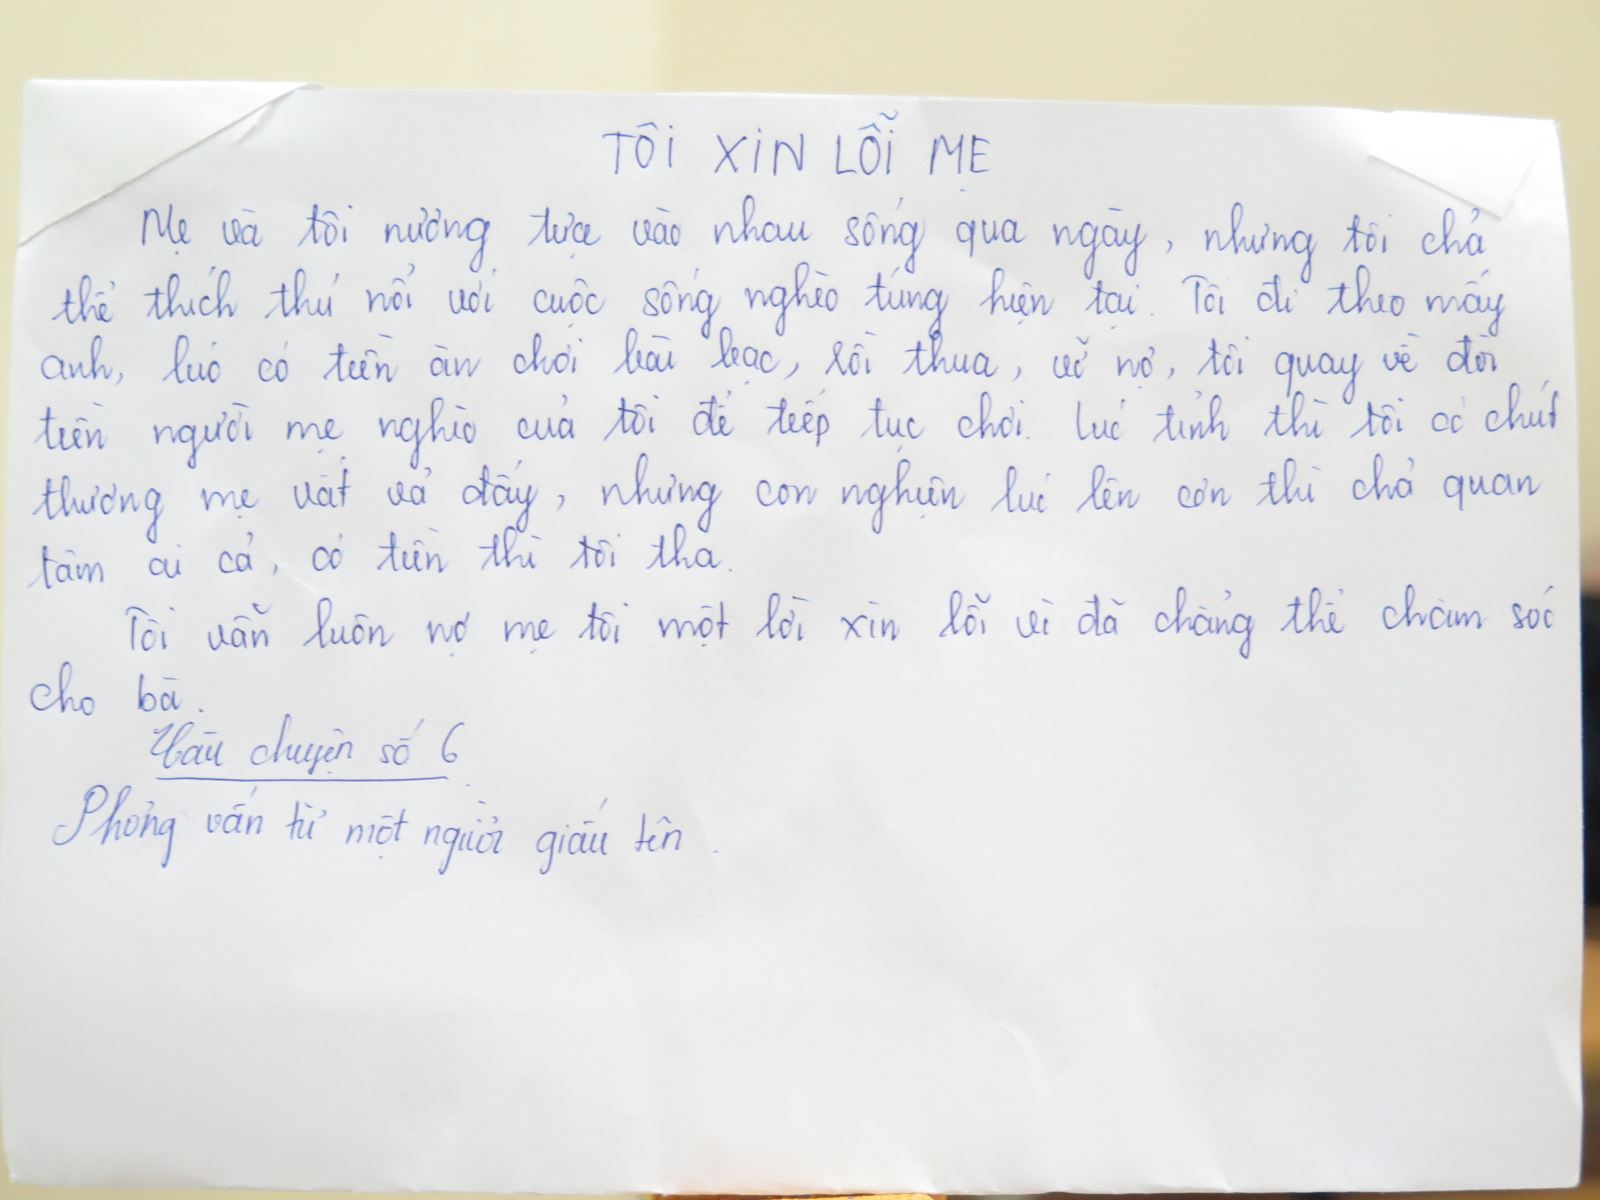 TÔI XIN LỖI MẸ
Mẹ và tôi nương tựa vào nhau sống qua ngày, nhưng tôi chả
thể thích thú nổi với cuộc sống nghèo túng hiện tại. Tôi đi theo mấy
anh, lúc có tiền ăn chơi bài bạc, rồi thua, vỡ nợ, tôi quay về đòi
tiền người mẹ nghèo của tôi để tiếp tục chơi. Lúc tỉnh thì tôi có chút
thương mẹ vất vả đấy, nhưng con nghiện lúc lên cơn thì chả quan
tâm ai cả, có tiền thì tôi tha.
Tôi vẫn luôn nợ mẹ tôi một lời xin lỗi vì đã chẳng thể chăm sóc
cho bà.
Câu chuyện số 6
Phỏng vấn từ một người giấu tên.